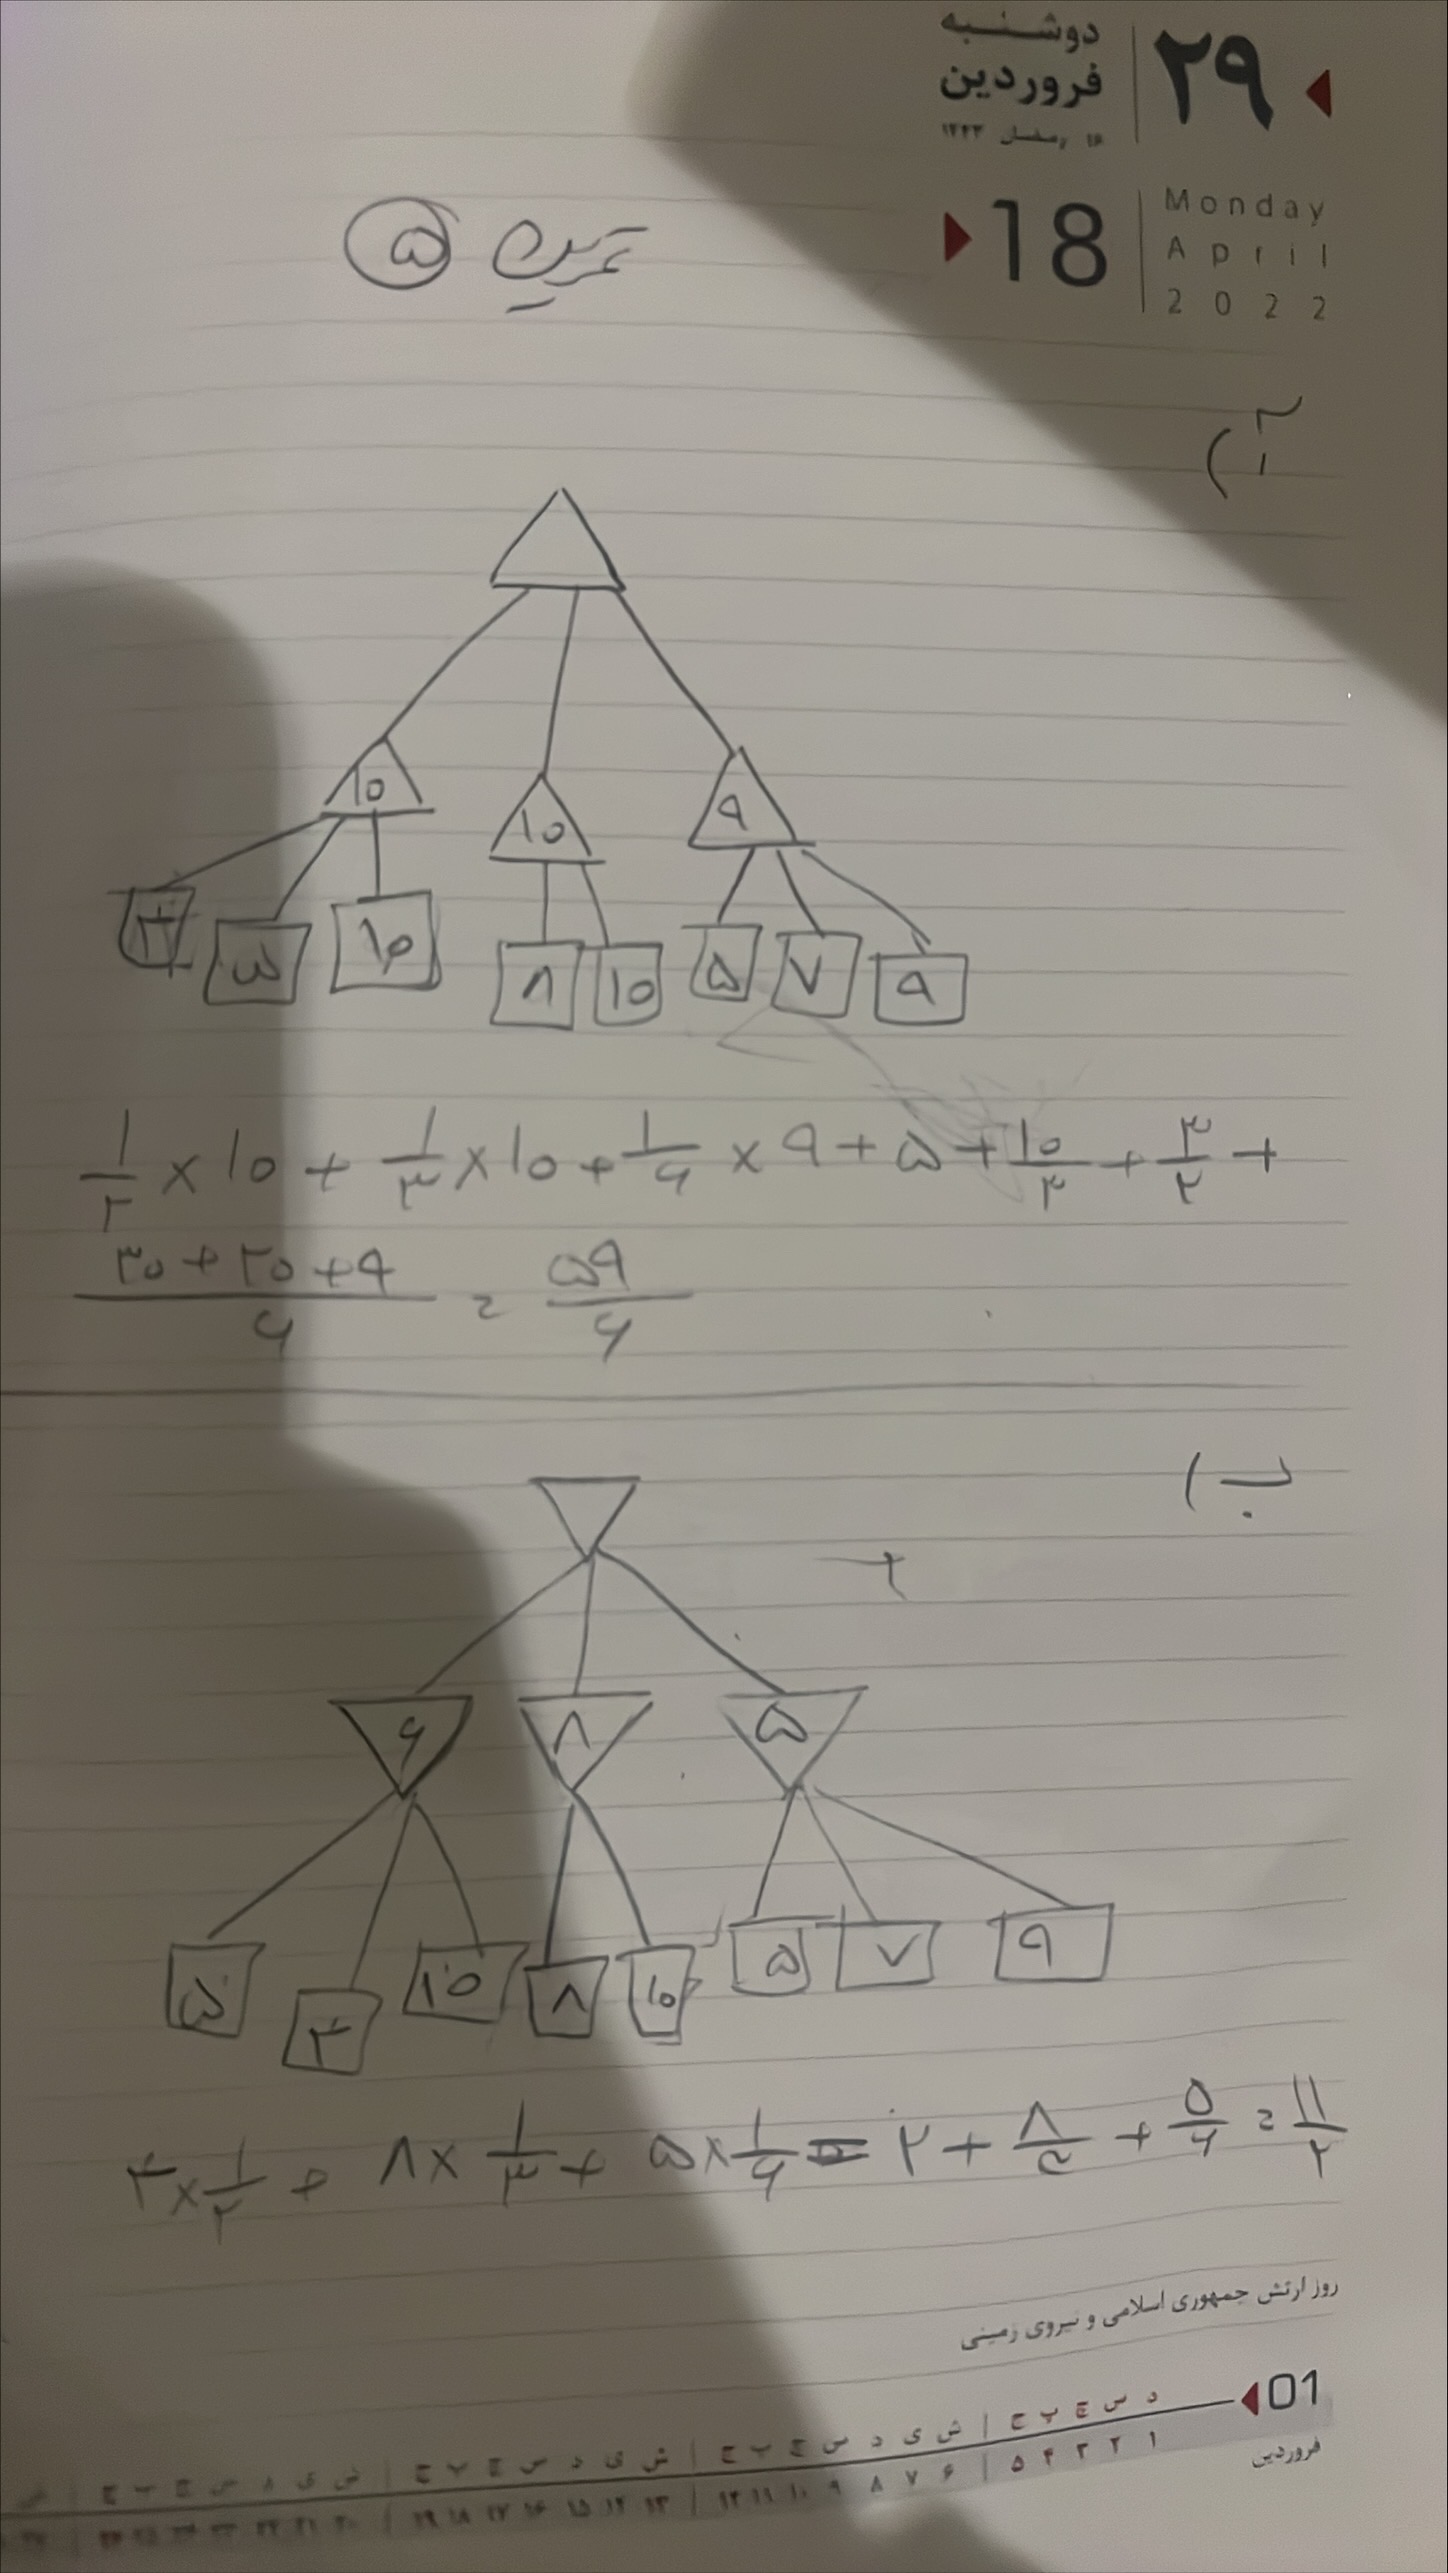 دوشنبه
فروردین
۲۹
۱۶ رمضان ۱۴۴۳
18
Monday
April
2022
تمرین ۵
آ)
۱۰ ۱۰ ۹
۴ ۵ ۱۰ ۸ ۱۰ ۵ ۷ ۹
۱/۲ × ۱۰ + ۱/۳ × ۱۰ + ۱/۶ × ۹ + ۵ + ۱۰/۳ + ۳/۲ +
۳۰ + ۲۰ + ۹/۶ = ۵۹/۶
ب)
۶ ۸ ۵
۵ ۴ ۱۰ ۸ ۱۰ ۵ ۷ ۹
۴ × ۱/۲ + ۸ × ۱/۳ + ۵ × ۱/۶ = ۲ + ۸/۳ + ۵/۶ = ۱۱/۲
روز ارتش جمهوری اسلامی و نیروی زمینی
01
فروردین
د س چ پ ج | ش ی د س چ پ ج | ش ی د س چ پ ج
۱ ۲ ۳ ۴ ۵ | ۶ ۷ ۸ ۹ ۱۰ ۱۱ ۱۲ | ۱۳ ۱۴ ۱۵ ۱۶ ۱۷ ۱۸ ۱۹